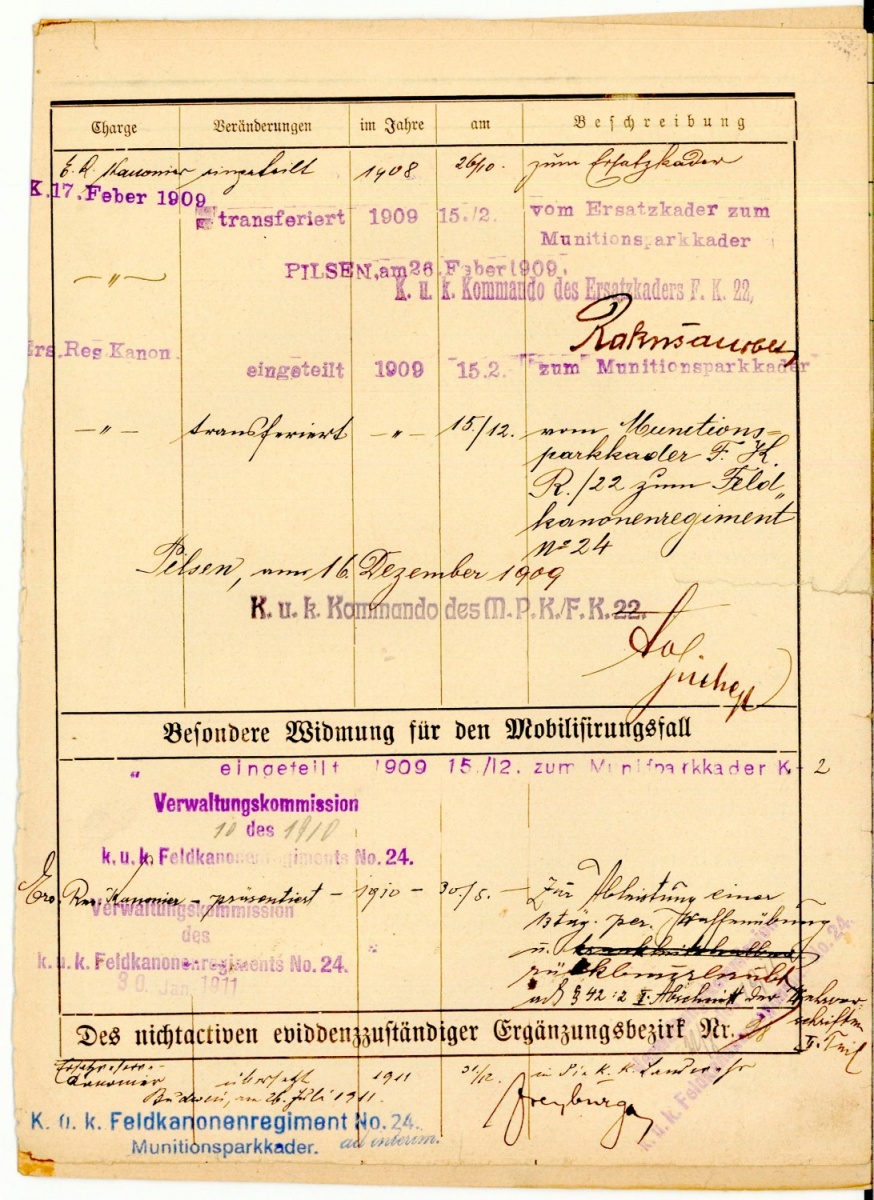 Charge Veränderungen im Jahre am Beschreibung
E. R. Kanonier eingeteilt 1908 26/10. zum Ersatzkader
K. 17. Feber 1909
transferiert 1909 15./2. vom Ersatzkader zum
Munitionsparkkader
PILSEN, am 26. Feber 1909.
— " — K. u. k. Kommando des Ersatzkaders F. K. 22,
Ers. Res Kanon.
eingeteilt 1909 15.2. zum Munitionsparkkader
— " — transferiert — " — 15/12. vom Munitions=
parkkader F. K.
R./22 zum Feld„
kanonenregiment
No 24
Pilsen, am 16. Dezember 1909
K. u. k. Kommando des M. P. K./F. K. 22.
Besondere Widmung für den Mobilisirungsfall
" eingeteilt 1909 15./12. zum Munitparkkader K - 2
Verwaltungskommission
10 des 1910
k. u. k. Feldkanonenregiments No. 24.
Ers. Res. Kanonier – präsentiert – 1910 – 30./8. – Zur Ableistung einer
13 täg. per. Waffenübung
Verwaltungskommission
des
u.
k. u. k. Feldkanonenregiments No. 24.
rückbeurlaubt
30. Jan. 1911
§ 42:2 II. Abschnitt der Wehrvor
schriften
II. Teil
Des nichtactiven eviddenzzuständiger Ergänzungsbezirk Nr.
Ersatzreserve-
Kanonier übersetzt 1911 31/12. in die k. k. Landwehr
Budweis, am 26. Juli 1911.
K. u. k. Feldkanonenregiment No. 24.
Munitionsparkkader. ad interim.